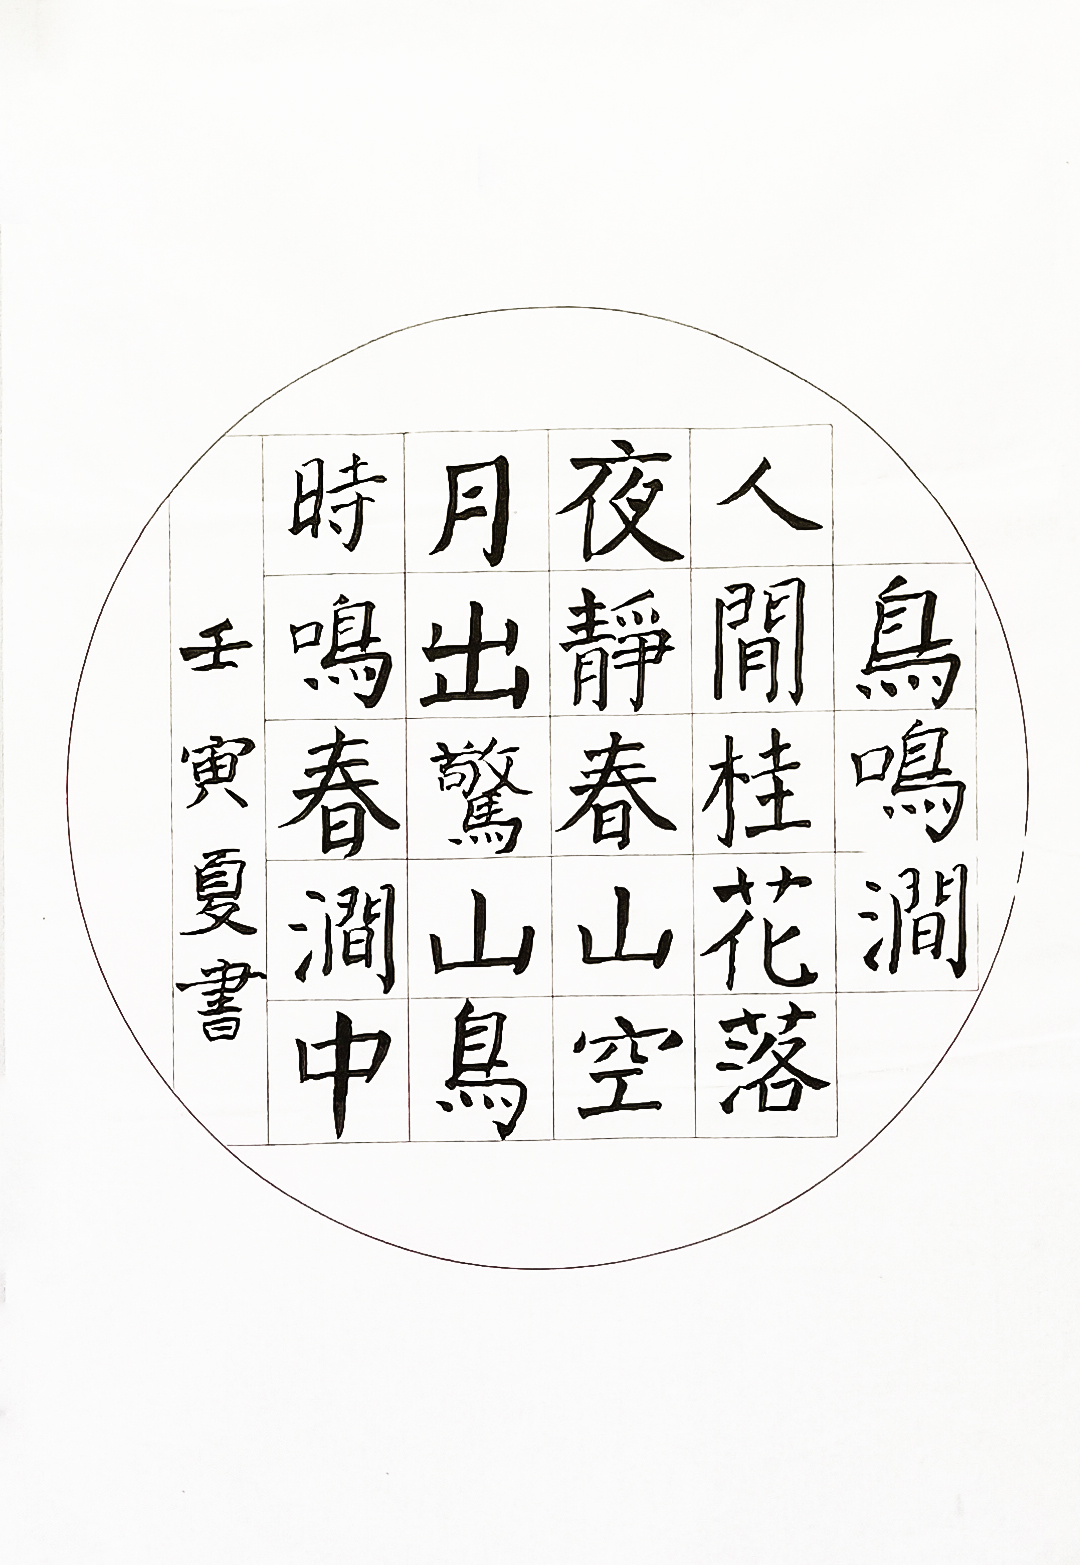 鳥鳴澗
人閒桂花落
夜靜春山空
月出驚山鳥
時鳴春澗中
壬寅夏書